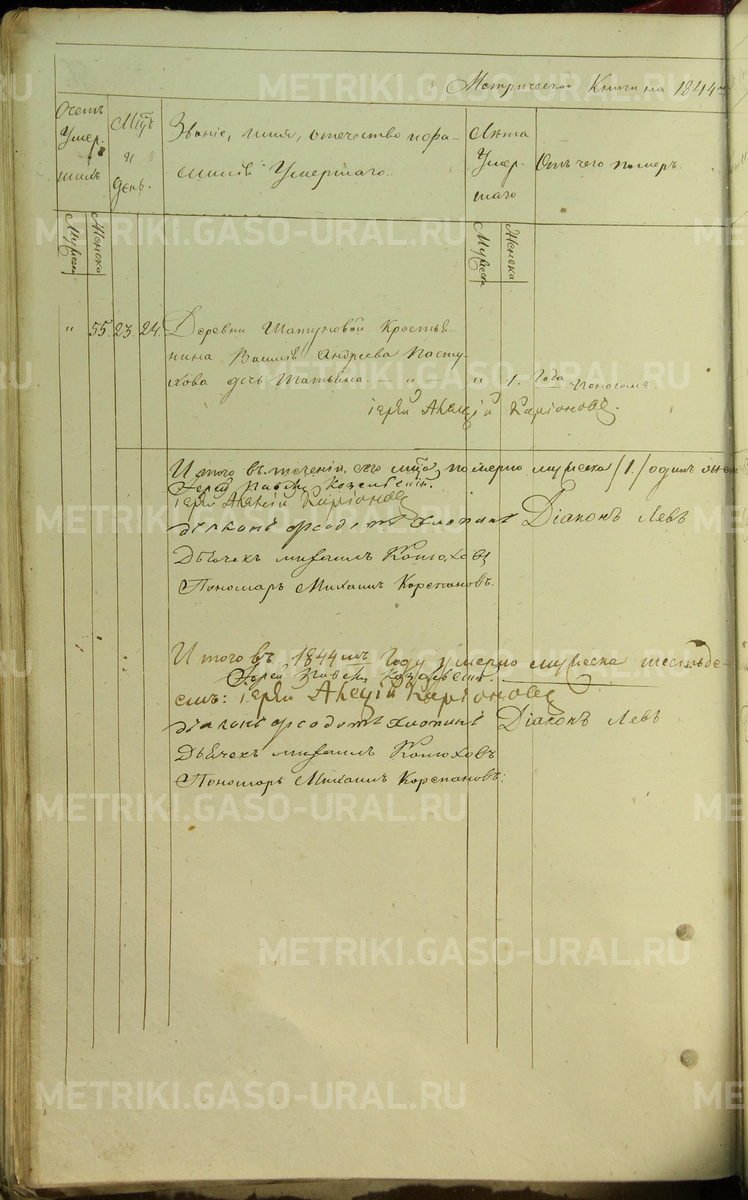 Метрической Книги на 1844
Счетъ
Умер-
шихъ
Мцъ
и
день.
Званіе, имя, отечество и фа-
милія Умершаго.
Лѣта
Умер-
шаго
Отъ чего померъ.
Мужеска
Женска
Мужеска
Женска
" 55. 23. 24. Деревни Шатуновой Крестья-
нина Василія Андреева Пасту-
хова дочь Татьяна — " — " 1. Года Поносомъ.
іерей Алексій Каріоновъ.
Итого въ теченіи сего мца померло мужеска /1./ одинъ
Іерей Козельскій.
іерей Алексій Каріоновъ
діаконъ Діаконъ Левъ
Дьячекъ михаилъ Конюховъ
Пономарь Михаилъ Корепановъ.
Итого въ 1844мъ Году умерло мужеска шестьде-
Іерей Козельскій.
іерей Алексій Каріоновъ
діаконъ Діаконъ Левъ
Дьячекъ михаилъ Конюховъ
Пономарь Михаилъ Корепановъ.
METRIKI.GASO-URAL.RU